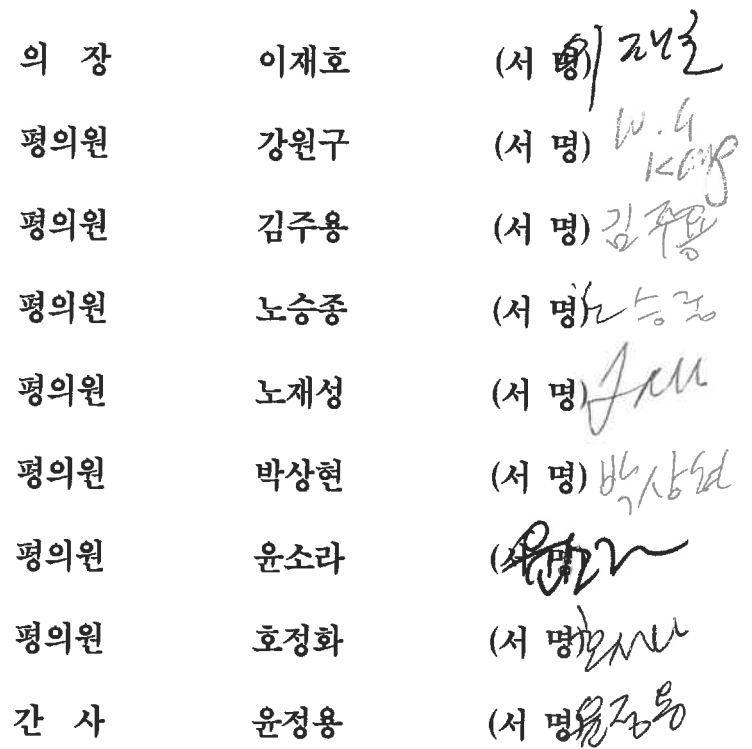 의 장 이재호 (서 명) 이재호
평의원 강원구 (서 명) W.G Kang
평의원 김주용 (서 명) 김주용
평의원 노승종 (서 명) 노승종
평의원 노재성 (서 명)
평의원 박상현 (서 명) 박상현
평의원 윤소라 (서 명)
평의원 호정화 (서 명)
간 사 윤정용 (서 명) 윤정용